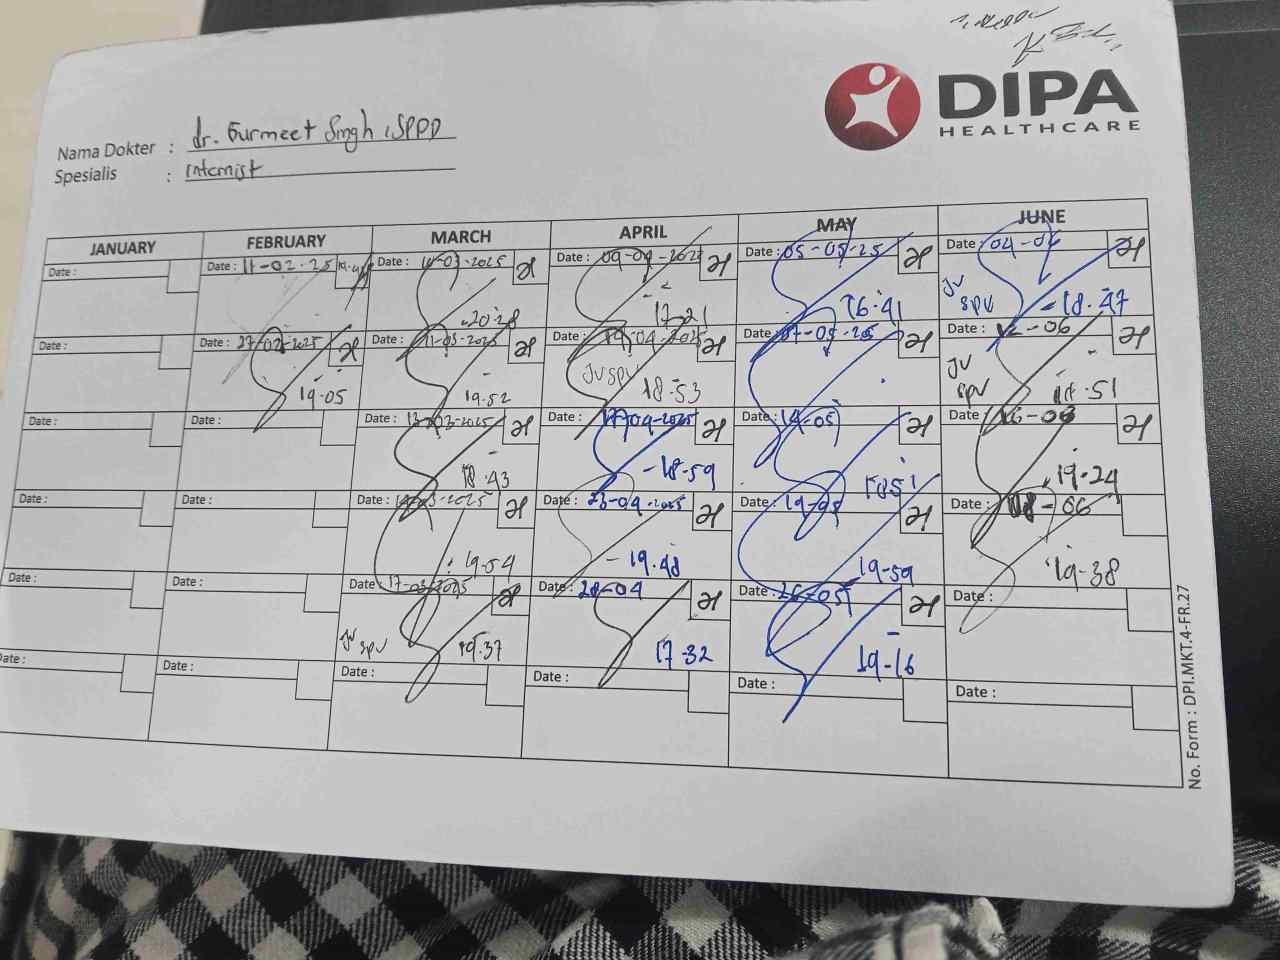 DIPA
HEALTHCARE
Nama Dokter : dr. Gurmeet Singh, SPPD
Spesialis : Internist
JANUARY FEBRUARY MARCH APRIL MAY JUNE
Date : Date : 11-02-25 Date : -03-2025 Date : 09-04-202 Date : 05-05-25 Date : 04-06
20.28 17.21 16.41 JV SPV 18.47
Date : Date : 27-02-2025 Date : 11-03-2025 Date : 04-2025 Date : 07-05-205 Date : 12-06
19.05 19.52 JV SPV 18.53 JV SPV 18.51
Date : Date : Date : 13-03-2025 Date : 17-04-2025 Date : 14-05 Date : 16-06
18.43 18.59 1851 19.24
Date : Date : Date : -03-2025 Date : 23-04-2025 Date : 19-05 Date : 18-06
19.54 19.48 19.59 19.38
Date : Date : Date : 17-03-2025 Date : 28-04 Date : 26-05 Date :
JV SPV 19.37 17.32 19-16
Date : Date : Date : Date : Date : Date :
No. Form : DPI.MKT.4-FR.27